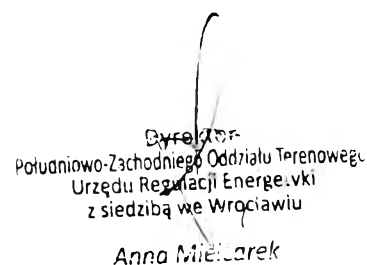 Dyrektor
Południowo-Zachodniego Oddziału Terenowego
Urzędu Regulacji Energetyki
z siedzibą we Wrocławiu
Anna Mielcarek